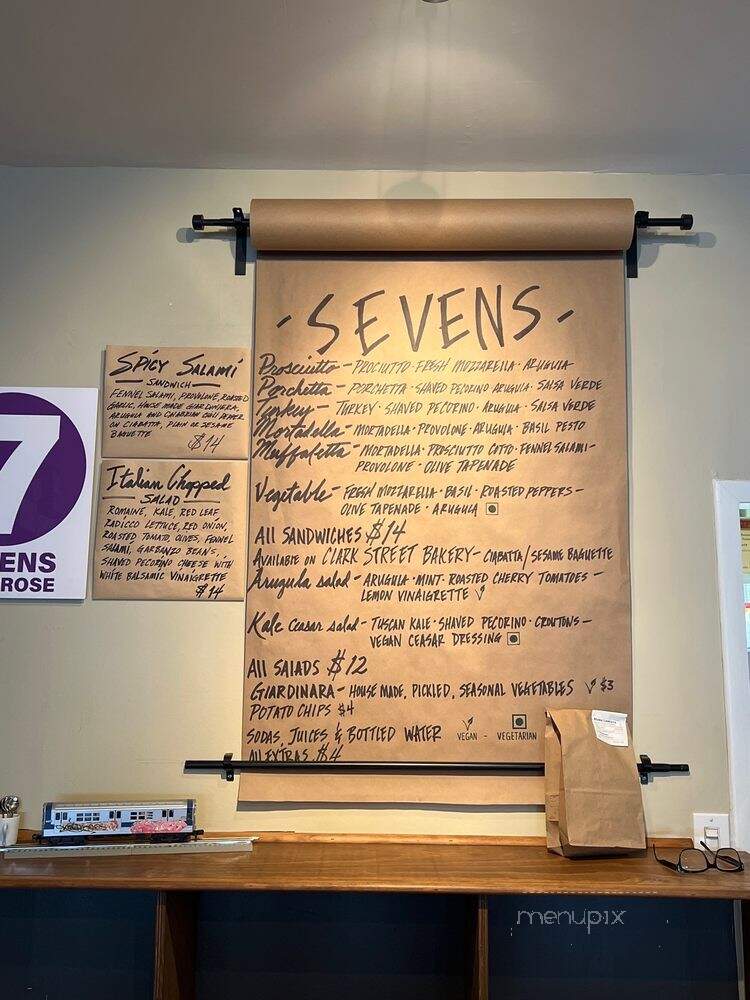 - SEVENS -
Prosciutto - PROCIUTTO · FRESH MOZZARELLA · ARUGULA
Porchetta - PORCHETTA · SHAVED PECORINO ARUGULA · SALSA VERDE
Turkey - TURKEY · SHAVED PECORINO · ARUGULA · SALSA VERDE
Mortadella - MORTADELLA · PROVOLONE · ARUGULA · BASIL PESTO
Muffaletta - MORTADELLA · PROSCIUTTO COTTO · FENNEL SALAMI -
PROVOLONE · OLIVE TAPENADE
Vegetable - FRESH MOZZARELLA · BASIL · ROASTED PEPPERS -
OLIVE TAPENADE · ARUGULA
All SANDWICHES $14
AVAILABLE ON CLARK STREET BAKERY - CIABATTA / SESAME BAGUETTE
Arugula salad - ARUGULA · MINT · ROASTED CHERRY TOMATOES -
LEMON VINAIGRETTE V
Kale Ceasar salad - TUSCAN KALE · SHAVED PECORINO · CROUTONS -
VEGAN CEASAR DRESSING
All SALADS $12
GIARDINARA - HOUSE MADE, PICKLED, SEASONAL VEGETABLES V $3
POTATO CHIPS $4
SODAS, JUICES & BOTTLED WATER
V
VEGAN - VEGETARIAN
All EXTRAS $4
SPICY SALAMI
SANDWICH
FENNEL SALAMI, PROVOLONE, ROASTED
GARLIC, HOUSE MADE GIARDINIERA,
ARUGULA AND CALABRIAN CHILI PEPPER
ON CIABATTA, PLAIN OR SESAME
BAGUETTE
$14
Italian Chopped
SALAD
ROMAINE, KALE, RED LEAF
RADICCO LETTUCE, RED ONION,
ROASTED TOMATO, OLIVES, FENNEL
SALAMI, GARBANZO BEANS,
SHAVED PECORINO CHEESE WITH
WHITE BALSAMIC VINAIGRETTE
$14
7
ENS
ROSE
menupix